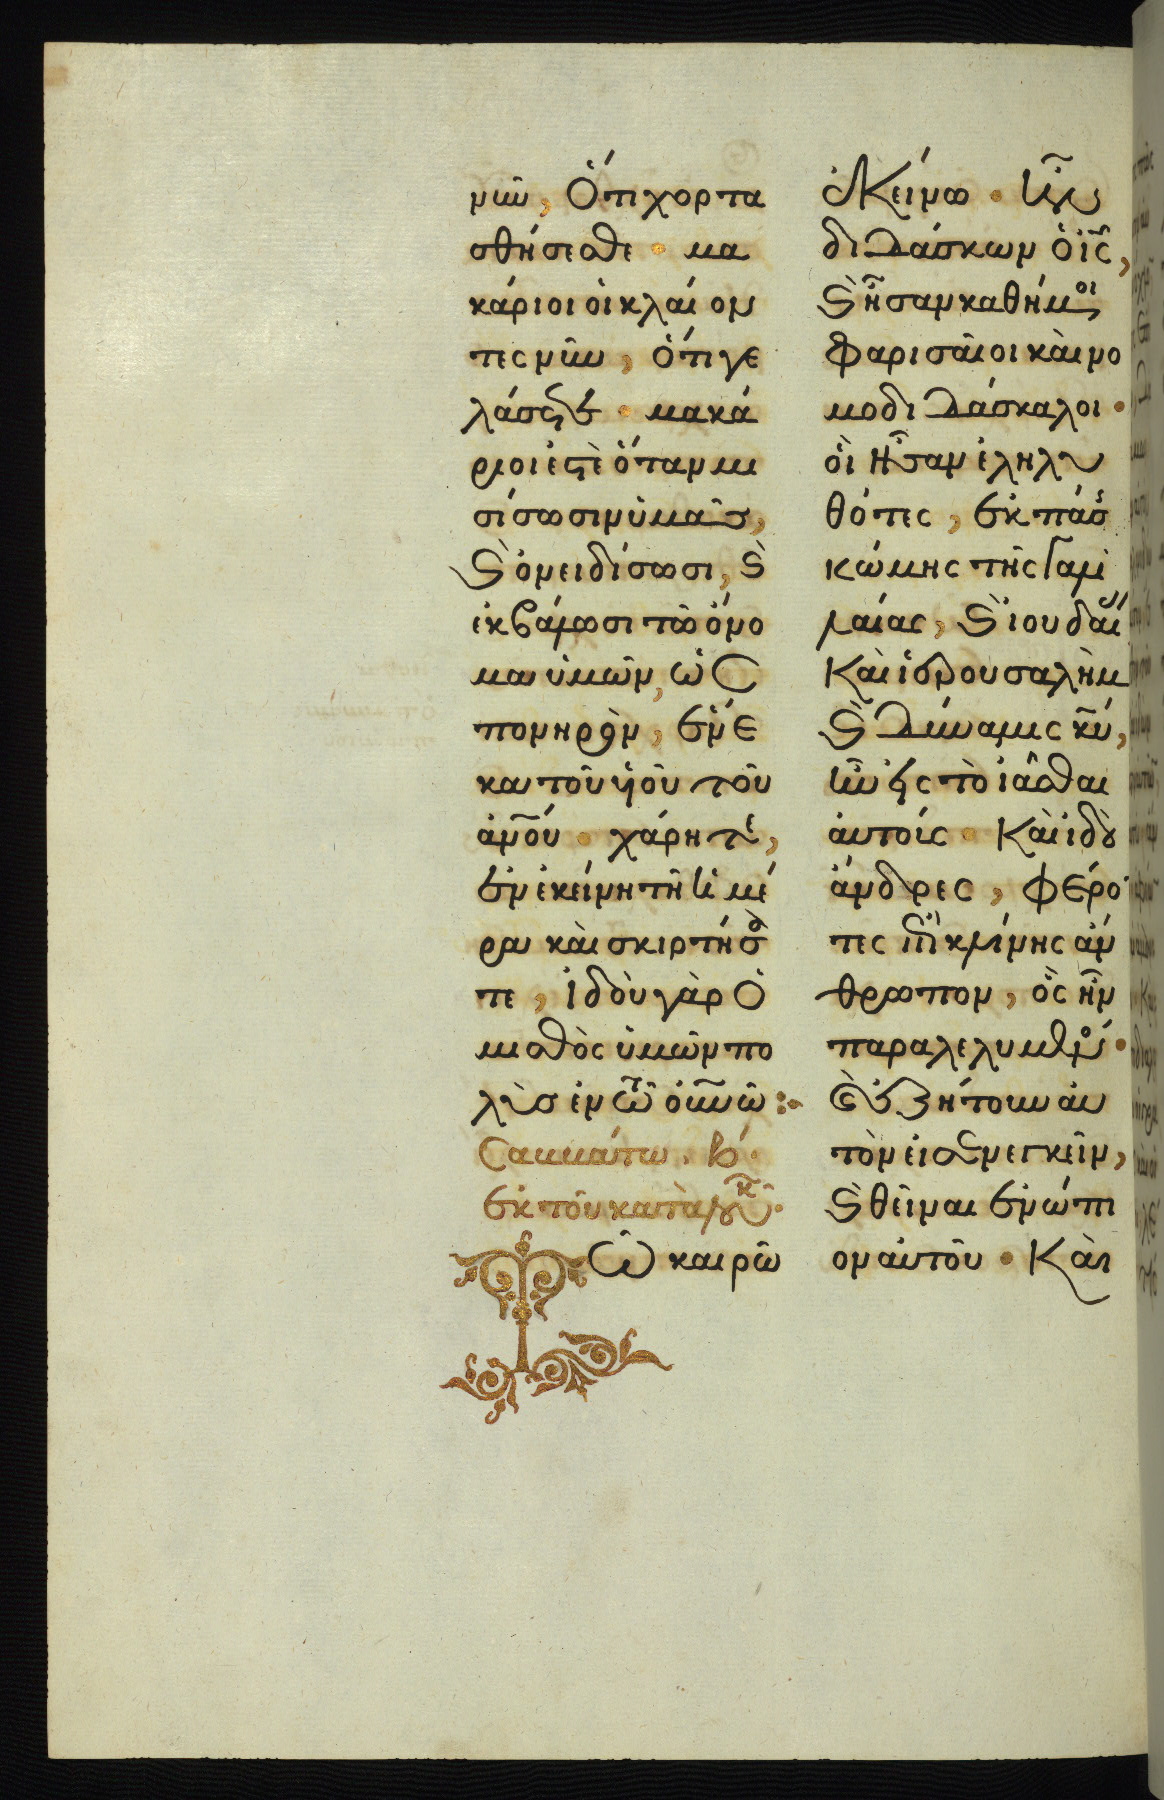 νῦν, Ὅτι χορτα
σθήσεσθε · μα
κάριοι οἱ κλαίον
τες νῦν, ὅτι γε
λάσετε · μακά
ριοί ἐστὲ ὅταν μι
σίσωσιν ὑμᾶσ,
ϗ ὀνειδίσωσι, ϗ
ἐκβάλωσι τὸ ὄνο
μα ὑμῶν, ὡς
πονηρὸν, ἕνε
κα τοῦ ὑοῦ τοῦ
ἀνου · χάρητε,
ἐν ἐκείνη τῆ ἡμέ
ρα καὶ σκιρτήσα
τε, ἰδοὺ γὰρ ὁ
μισθὸς ὑμῶν πο
λὺσ ἐν τῶ οὐνῶ :
Σαββάτω · β ·
ἐκ τοῦ κατὰ λουκ ·
Τῶ καιρῶ
ἐκείνω · ἦν
διδάσκων ὁ ις,
ϗ ἦσαν καθήμενοι
φαρισαῖοι καὶ νο
μοδιδάσκαλοι ·
οἳ ἦσαν ἐληλυ
θότες, ἐκ πάσης
κώμης τῆς Γαλι
λαίας, ϗ ἰουδαίας
Καὶ ἱερουσαλὴμ
ϗ δύναμις κυ,
ἦν εἰς τὸ ἰᾶσθαι
αὐτούς · Καὶ ἰδοὺ
ἄνδρες, φέρον
τες ἐπὶ κλίνης ἄν
θρωπον, ὃς ἦν
παραλελυμένος ·
ϗ ἐζήτουν αὐ
τὸν εἰσενεγκεῖν,
ϗ θεῖναι ἐνώπι
ον αὐτοῦ · Καὶ